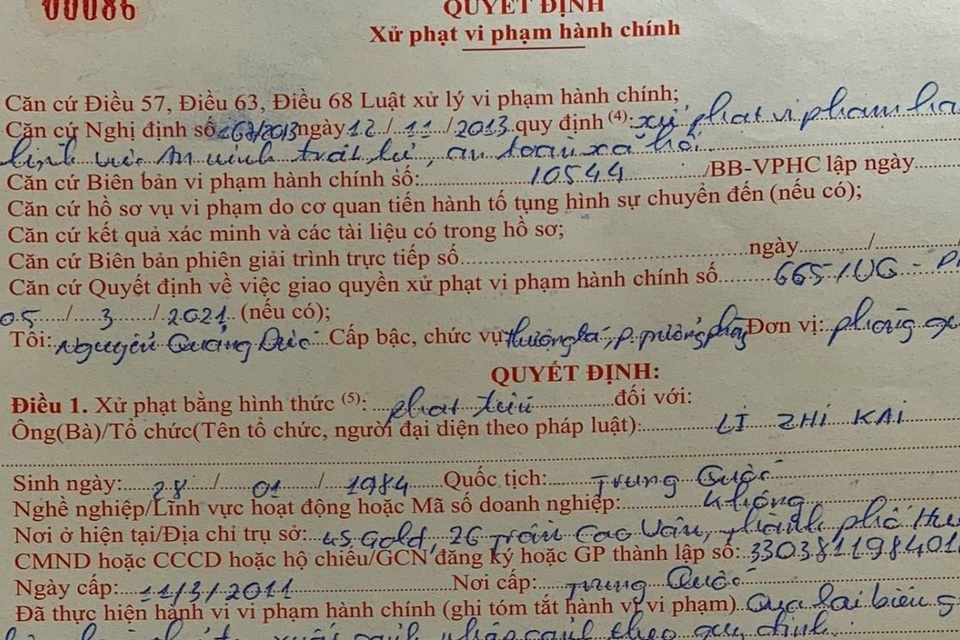 00086
QUYẾT ĐỊNH
Xử phạt vi phạm hành chính
Căn cứ Điều 57, Điều 63, Điều 68 Luật xử lý vi phạm hành chính;
Căn cứ Nghị định số 167/2013 ngày 12 / 11 / 2013 quy định (4): xử phạt vi phạm
lĩnh vực An ninh, trật tự, an toàn xã hội
Căn cứ Biên bản vi phạm hành chính số: 10544 /BB-VPHC lập ngày
Căn cứ hồ sơ vụ vi phạm do cơ quan tiến hành tố tụng hình sự chuyển đến (nếu có);
Căn cứ kết quả xác minh và các tài liệu có trong hồ sơ;
Căn cứ Biên bản phiên giải trình trực tiếp số ngày /
Căn cứ Quyết định về việc giao quyền xử phạt vi phạm hành chính số 665/UQ -
05 / 3 / 2021 (nếu có);
Tôi: Nguyễn Quảng Đức Cấp bậc, chức vụ thượng tá, P. trưởng phòng Đơn vị: phòng
QUYẾT ĐỊNH:
Điều 1. Xử phạt bằng hình thức (5): phạt tiền đối với:
Ông(Bà)/Tổ chức(Tên tổ chức, người đại diện theo pháp luật): LI ZHI KAI
Sinh ngày: 28 / 01 / 1984 Quốc tịch: Trung Quốc
Nghề nghiệp/Lĩnh vực hoạt động hoặc Mã số doanh nghiệp: Không
Nơi ở hiện tại/Địa chỉ trụ sở: Gold, 26 Trần Cao Vân, thành phố Huế
CMND hoặc CCCD hoặc hộ chiếu/GCN đăng ký hoặc GP thành lập số: 330381198401
Ngày cấp: 11/3/2011 Nơi cấp: Trung Quốc
Đã thực hiện hành vi vi phạm hành chính (ghi tóm tắt hành vi vi phạm) Qua lại biên
xuất cảnh, nhập cảnh theo quy định